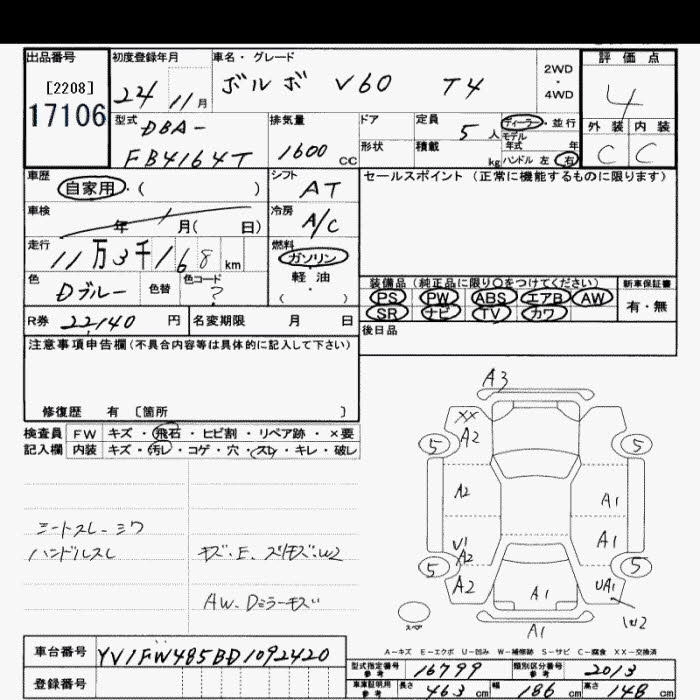 出品番号
[2208]
17106
初度登録年月
24 11月
車名・グレード
ボルボ V60 T4
2WD
・
4WD
評価点
4
外装 内装
C C
型式
DBA-
FB4164T
排気量
1600 CC
ドア
形状
定員
5人
積載
kg
ディーラー・並行
モデル
年式 年
ハンドル 左 右
車歴
自家用・( )
シフト
AT
セールスポイント (正常に機能するものに限ります)
車検
年 月( 日)
冷房
A/C
走行
11万3千168km
燃料
ガソリン
軽・油
・( )
色
Dブルー
色替
色コード
?
装備品 (純正品に限り〇をつけてください)
PS PW ABS エアB AW
SR ナビ TV カワ
新車保証書
有・無
R券 22,140円
名変期限 月 日
後日品
注意事項申告欄(不具合内容等は具体的に記入して下さい)
修復歴 有 [箇所 ]
検査員 FW キズ・飛石・ヒビ割・リペア跡・×要
記入欄 内装 キズ・汚レ・コゲ・穴・スレ・キレ・破レ
シートスレ-シワ
ハンドルスレ
AW-Dミラーキズ
A3
XX
A2
5
5
A2
A1
V1
A2
A1
5
5
A2
A1
UA1
W2
スペア
A1
A-キズ E-エクボ U-凹み W-補修跡 S-サビ C-腐食 XX-交換済
車台番号 YV1FW485BD1092420
登録番号
型式指定番号
参考
16799
類別区分番号
参考
2013
車庫証明用
参考
長さ 463cm 幅 186cm 高さ 148cm